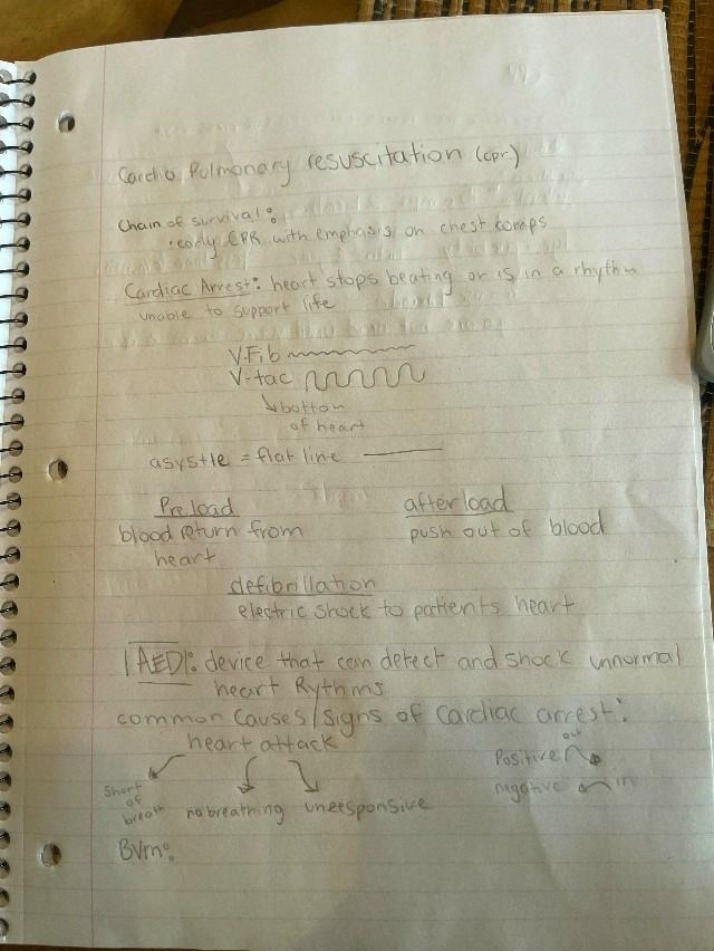 Cardio Pulmonary resuscitation (cpr)
Chain of survival:
• early CPR with emphasis on chest comps
Cardiac Arrest: heart stops beating or is in a rhythm
unable to support life
V-Fib
V-tac
bottom
of heart
asystle = flat line
Preload
blood return from
heart
afterload
push out of blood
defibrillation
electric shock to patients heart
AED: device that can detect and shock unnormal
heart Rythms
common causes/signs of cardiac arrest:
heart attack
Short
of
breath
no breathing
unresponsive
out
Positive
negative in
BVM: